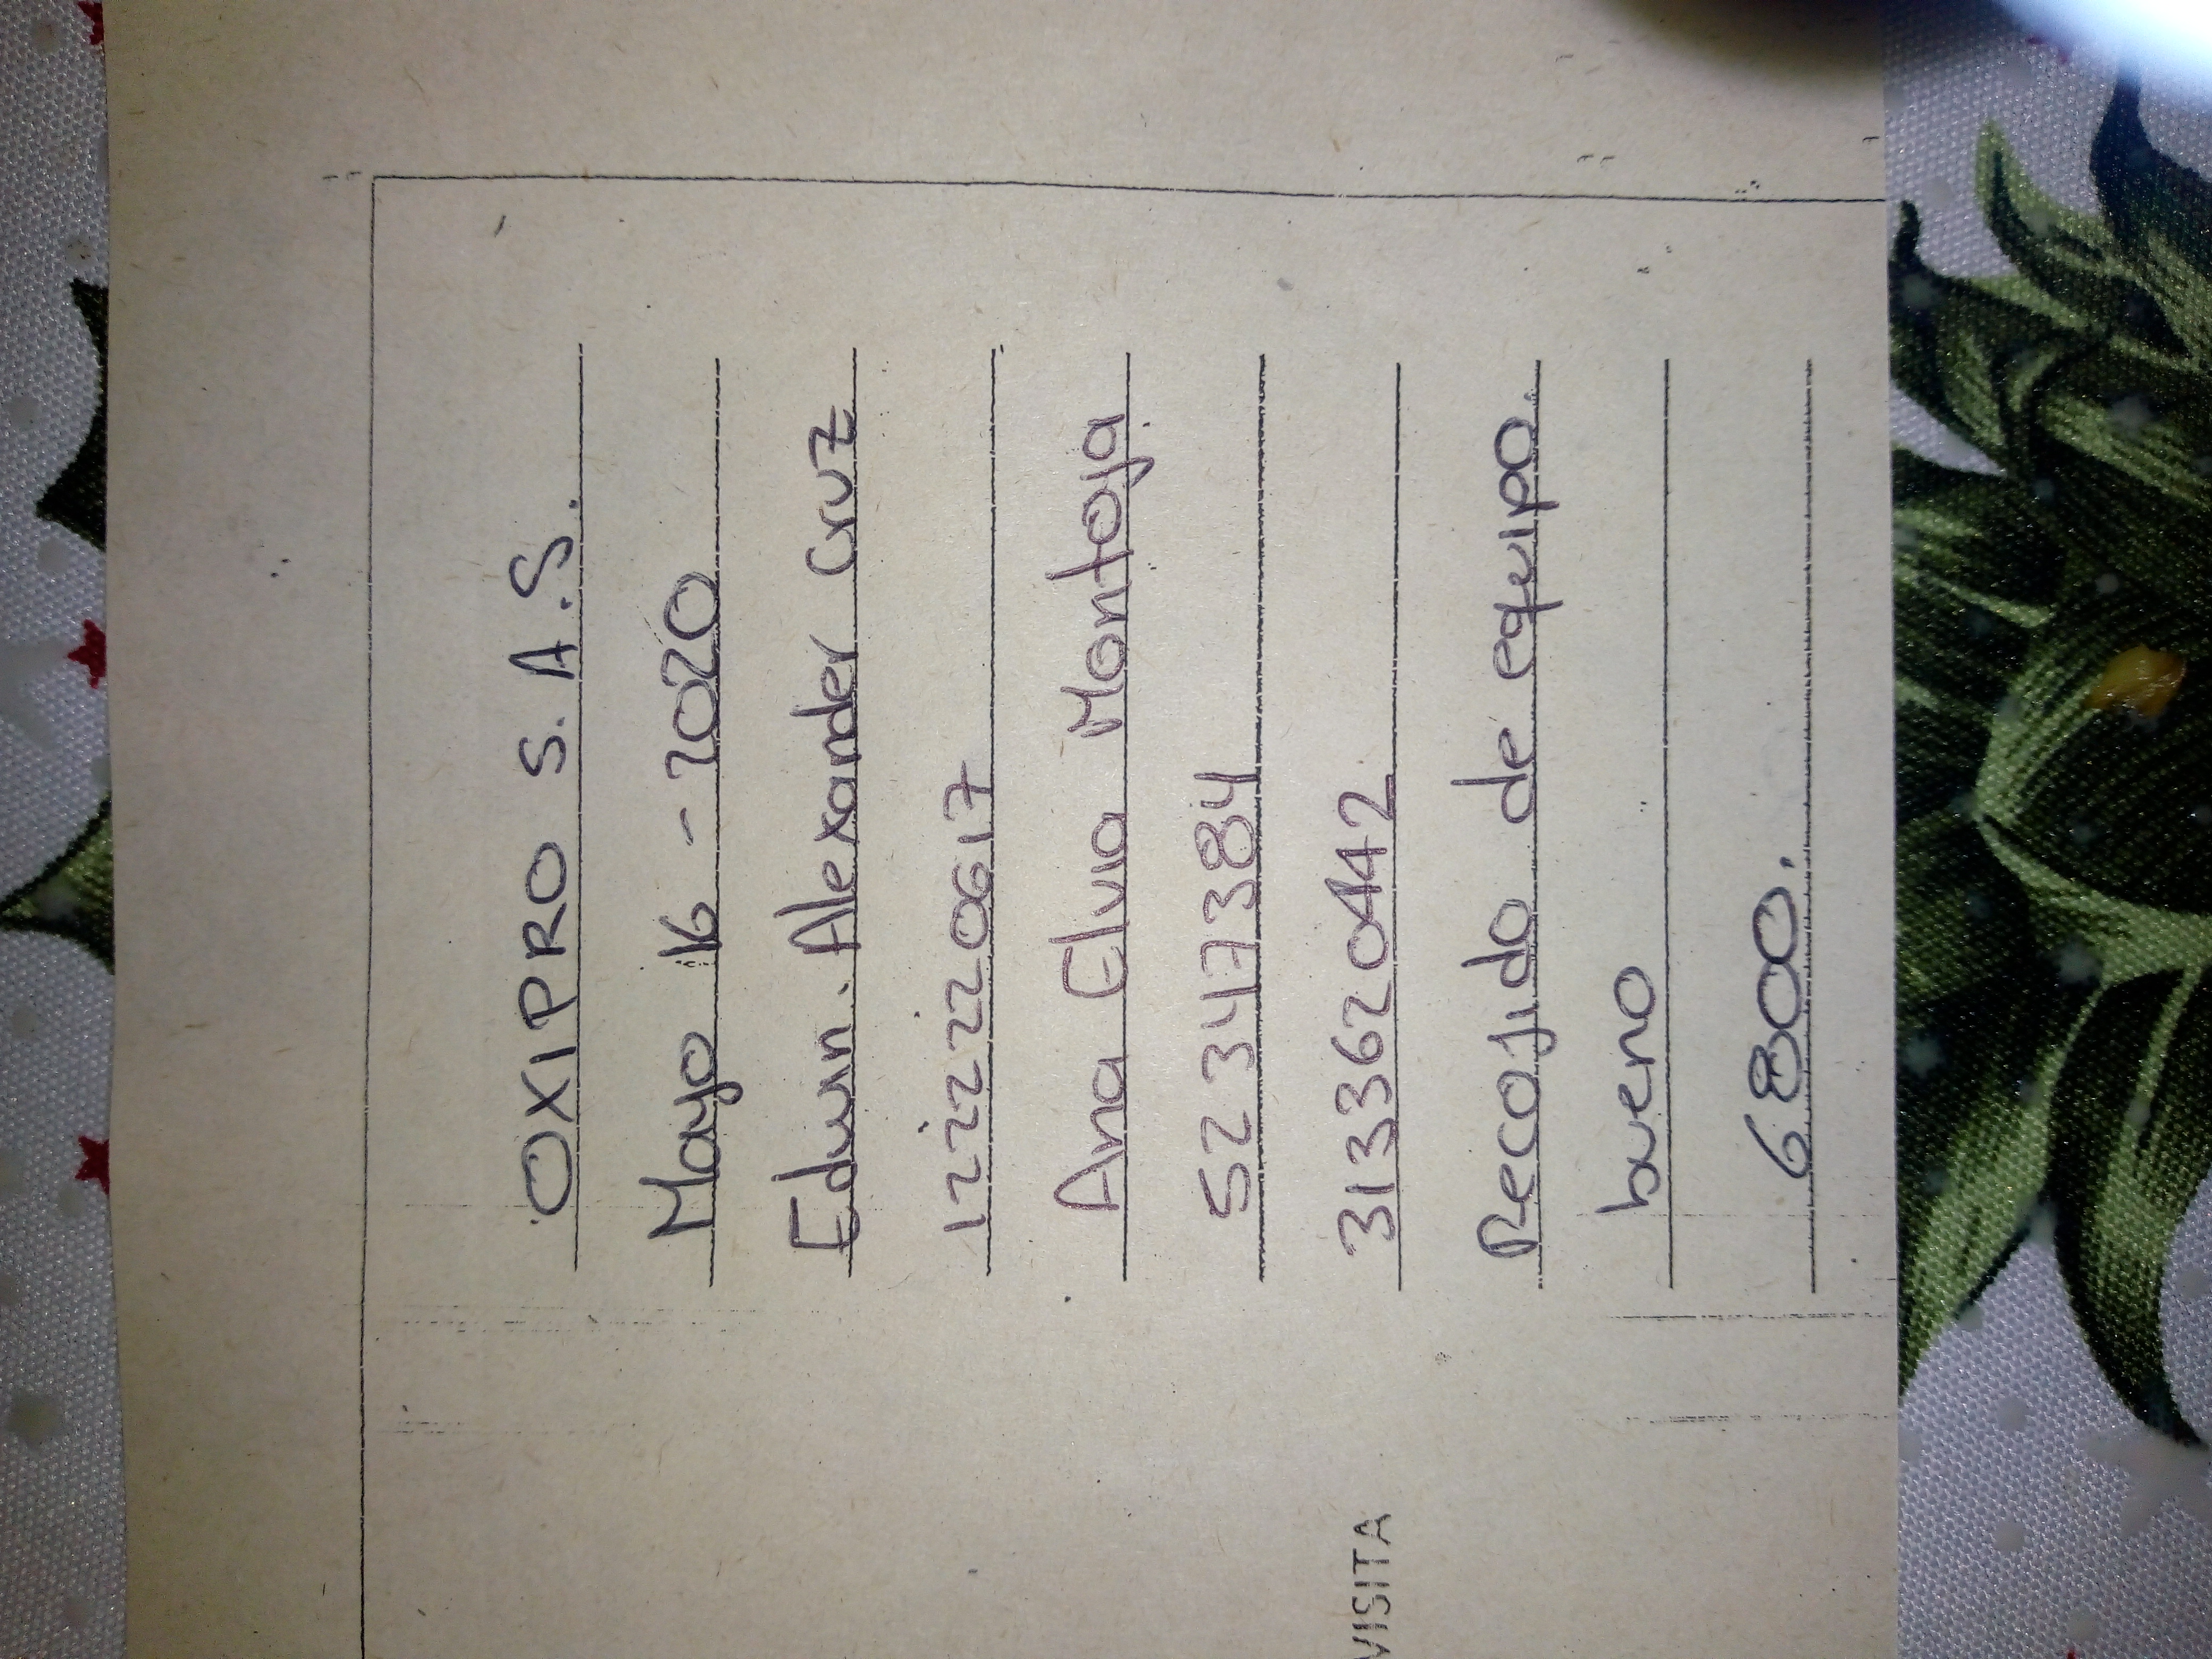 OXIPRO S.A.S.
Mayo 16 - 2020
Edwin. Alexander Cruz
122220617
Ana Elvia Montoya
52347384
3133620442
VISITA
Recojido de equipo.
bueno
6800.